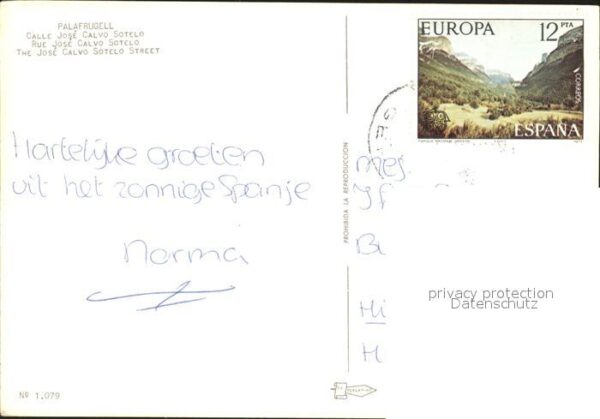 PALAFRUGELL
CALLE JOSÉ CALVO SOTELO
RUE JOSÉ CALVO SOTELO
THE JOSÉ CALVO SOTELO STREET
EUROPA 12 PTA
CORREOS
ESPAÑA
Hartelijke groeten
uit het zonnige Spanje
Norma
PROHIBIDA LA REPRODUCCION
Mej.
privacy protection
Datenschutz
Nº 1.079